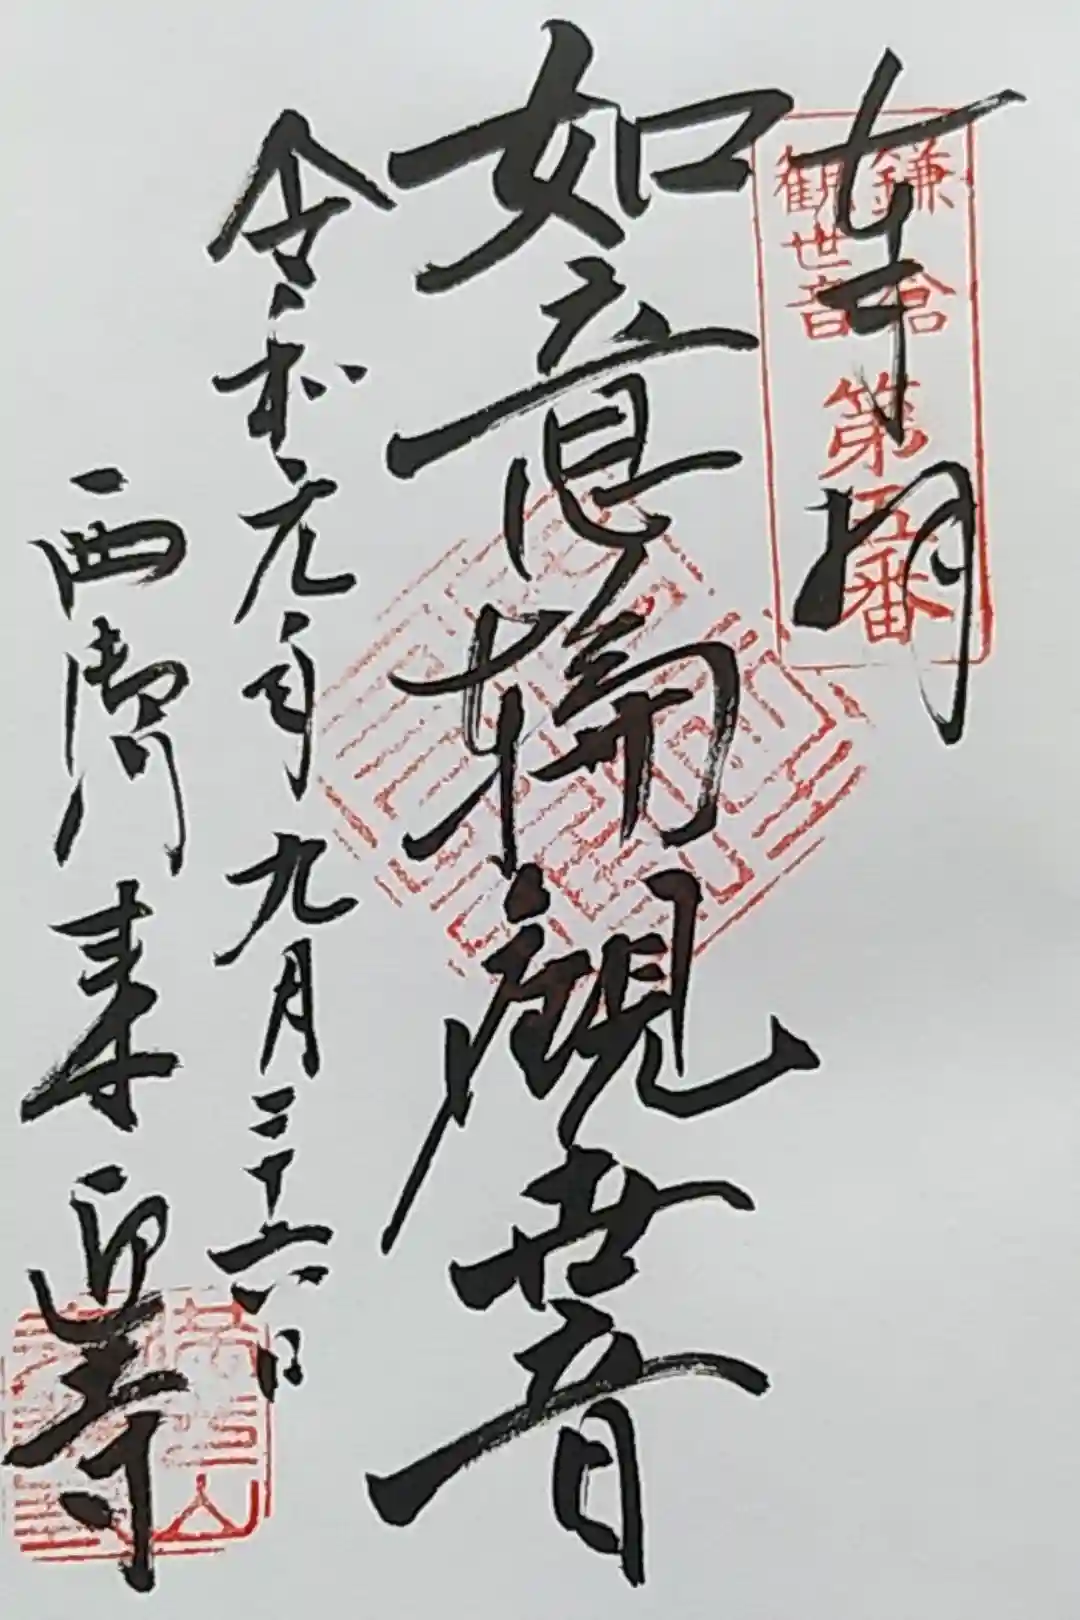 奉拝
鎌倉
観世音
第五番
如意輪観世音
令和元年九月二十六日
西御門来迎寺